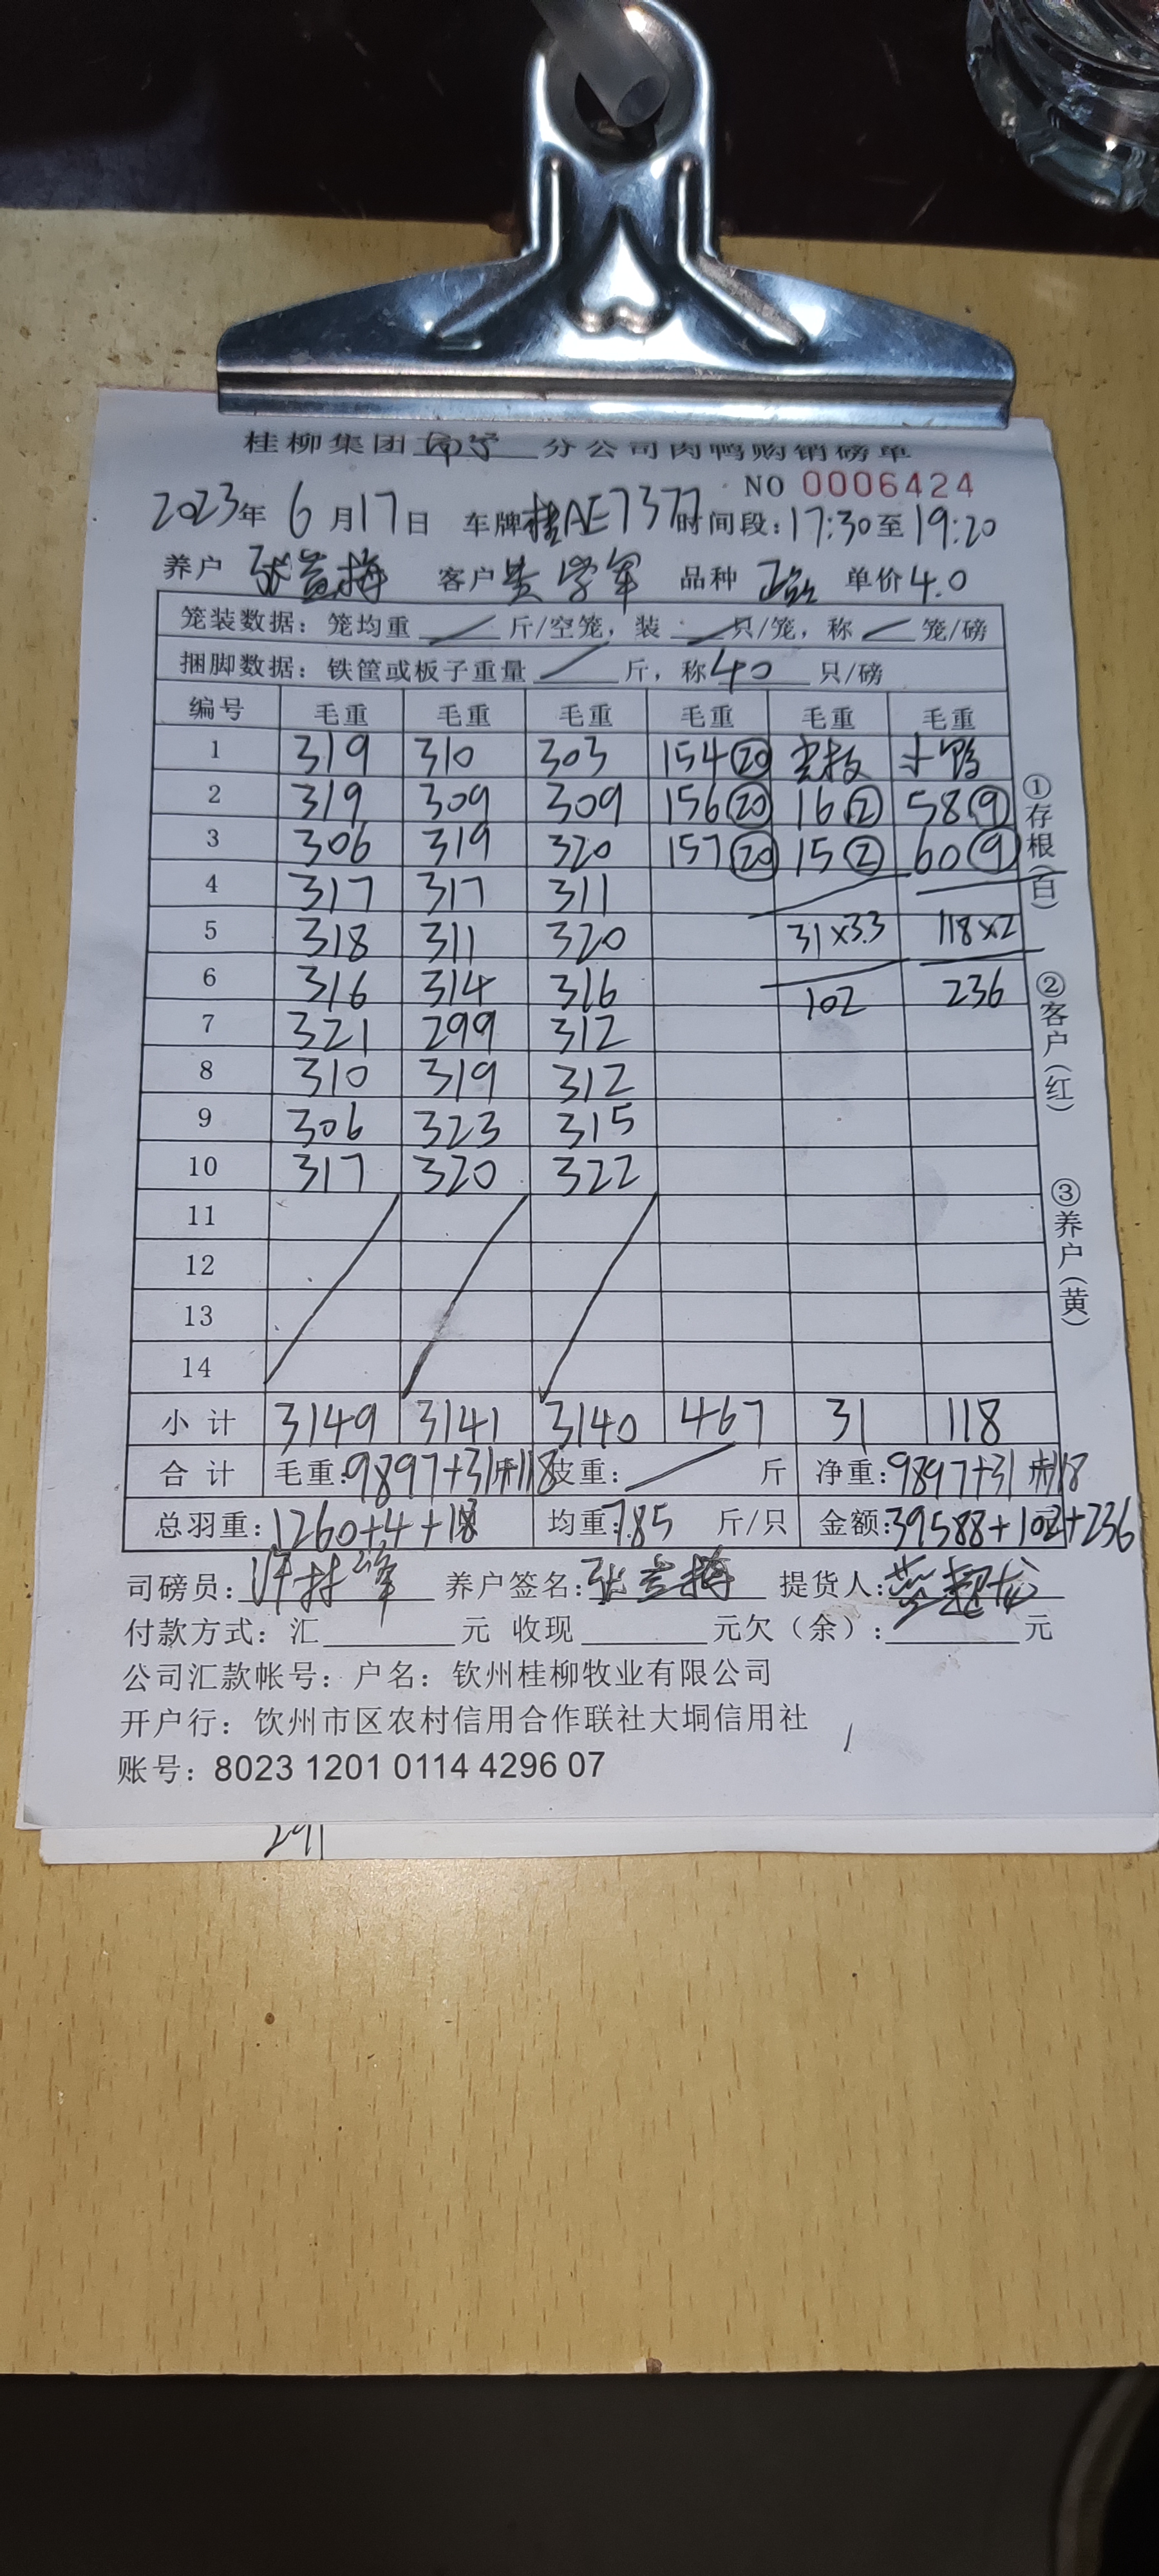 桂柳集团南宁分公司肉鸭购销磅单
NO 0006424
2023年6月17日 车牌桂AE7377时间段:17:30至19:20
养户 张益梅 客户 学军 品种 单价4.0
笼装数据: 笼均重 斤/空笼, 装 只/笼, 称 笼/磅
捆脚数据: 铁筐或板子重量 斤, 称40 只/磅
编号 毛重 毛重 毛重 毛重 毛重 毛重
1 319 310 303 154⑳
2 319 309 309 156⑳ 16② 58⑨
3 306 319 320 157⑳ 15② 60⑨
4 317 317 311
5 318 311 320 31×3.3 118×2
6 316 314 316 102 236
7 321 299 312
8 310 319 312
9 306 323 315
10 317 320 322
11
12
13
14
小计 3149 3141 3140 467 31 118
合计 毛重:9897+31+118 皮重: 斤 净重:9897+31+118
总羽重:1260+4+18 均重:7.85 斤/只 金额:39588+102+236
司磅员: 养户签名:张益梅 提货人:
付款方式: 汇 元 收现 元欠(余): 元
公司汇款帐号: 户名: 钦州桂柳牧业有限公司
开户行: 钦州市区农村信用合作联社大垌信用社
账号: 8023 1201 0114 4296 07
①存根(白)
②客户(红)
③养户(黄)
291